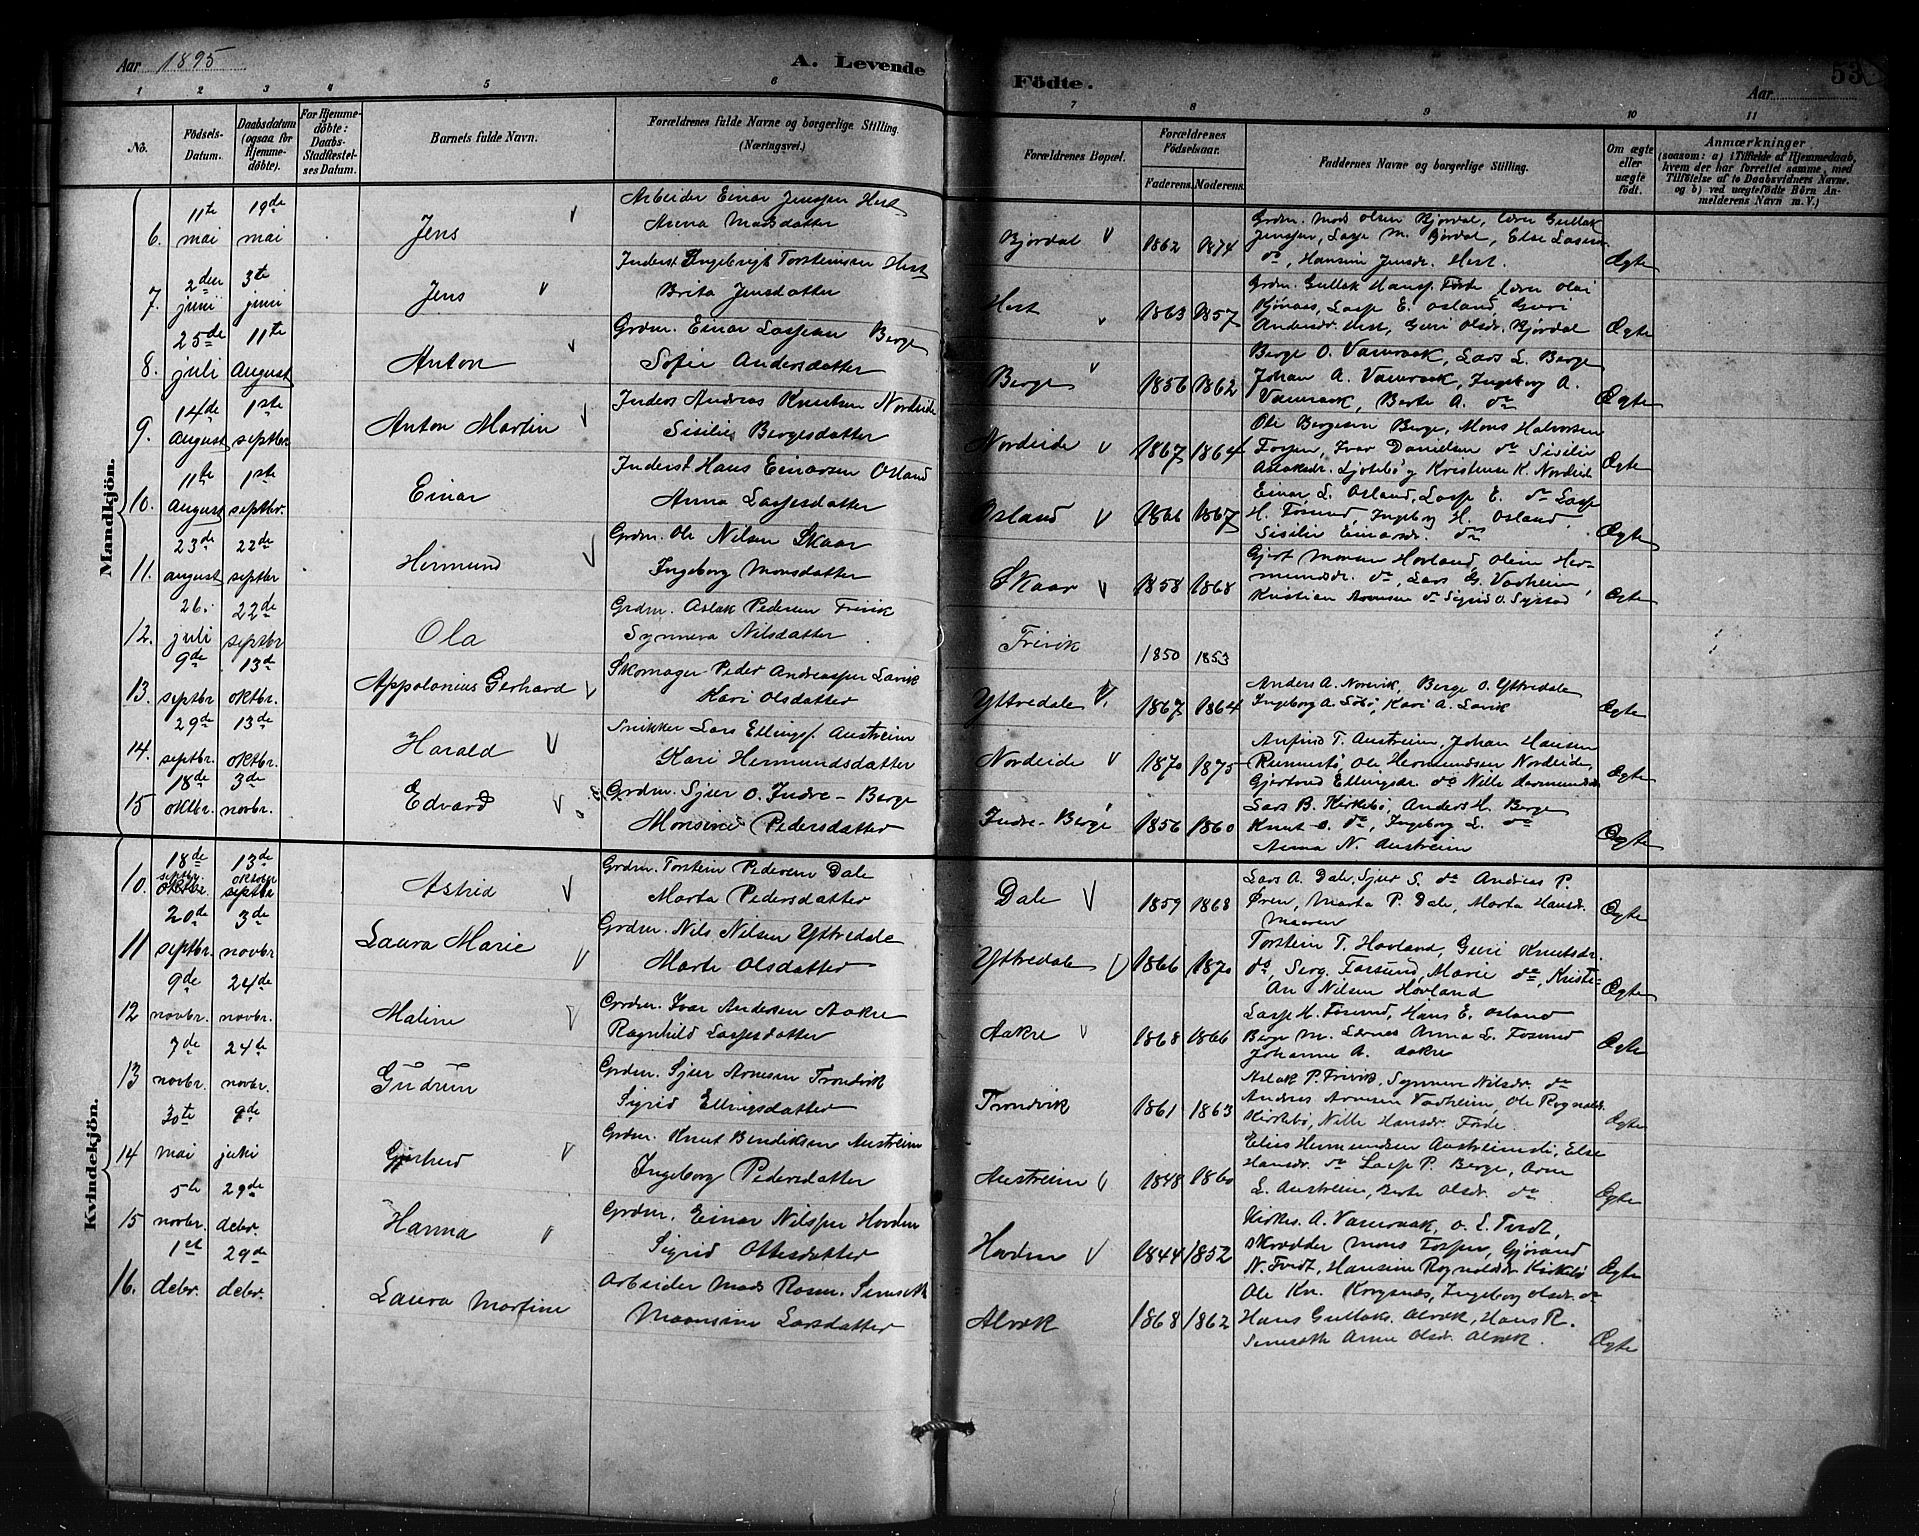 Aar 1895
A. Levende
Födte.
53
Aar
1 2 3 4 5 6 7 8 9 10 11
No.
Födsels-Datum.
Daabsdatum (ogsaa for Hjemmedöbte).
For Hjemmedöbte: Daabs-Stadfæstelses Datum.
Barnets fulde Navn.
Forældrenes fulde Navne og borgerlige Stilling. (Næringsvei.)
Forældrenes Bopæl.
Forældrenes Födselsaar.
Faderens. Moderens.
Faddernes Navne og borgerlige Stilling.
Om ægte eller uægte födt.
Anmærkninger
(saasom: a) i Tilfælde af Hjemmedaab, hvem der har forrettet samme, med Tilföielse af to Daabsvidners Navne, og b) ved uægtefödte Börn Anmelderens Navn m. V.)
Mandkjön.
6. 11te mai 19de mai Jens
Arbeider Einar Jensen Hest
Anna Madsdatter
Björdal 1862 1874
Grdm. Mads Olsen Björdal, Gullak
Jensen, Lasse M. Björdal, Else
do, Hansine Jensdr. Hest.
Ægte
7. 2den juni 3te juni Jens
Inderst Ingebrigt Torsteinsen Hest
Brita Jensdatter
Hest 1863 1857
Grdm. Gullak Hansen Förde
Lasse E. Osland, Guri
Andersdr. Hest, Guri Olsdr. Björdal
Ægte
8. 25de juli 11te August Anton
Grdm. Einar Lassesen Berge
Sofie Andersdatter
Berge 1856 1862
Berge O. Vamraak, Lars L. Berge
Johan A. Vamraak, Ingeborg A.
Vamraak, Berte A. do
Ægte
9. 14de August 1ste septbr Anton Martin
Inders Andreas Knutsen Nordeide
Sisilie Bergesdatter
Nordeide 1867 1864
Ole Bergesen Berge, Mons Halvorsen
Ivar Danielsen do Sisilie
Kristense K. Nordeide
Ægte
10. 11te August 1ste septbr. Einar
Inderst Hans Einarsen Osland
Anna Lassesdatter
Osland 1866 1867
Einar L. Osland, Lasse E. do Lasse
H. Ingeborg H. Osland,
Sisilie Einarsdr. do
Ægte
11. 23de august 22de septbr Hermund
Grdm. Ole Nilsen Skaar
Ingeborg Monsdatter
Skaar 1858 1868
Gjert Monsen Hovland, Oline Her-
mundsdr. do, Lars G. Vadheim
Kristian Arnesen do Sigrid O.
Ægte
12. 26. juli 22de septbr Ola
Grdm. Aslak Pedersen Frivik
Synneva Nilsdatter
Frivik
1850 1853
13. 9de septbr 13de oktbr. Appolonius Gerhard
Skomager Peder Andreassen Lavik
Kari Olsdatter
Yttredale 1867 1864
Anders A. Norevik, Berge O. Yttredale
Ingeborg A. Kari A. Lavik
Ægte
14. 29de septbr. 13de oktbr. Harald
Snikker Lars Ellings. Austreim
Kari Hermundsdatter
Nordeide 1870 1875
Anfind T. Austreim, Johan Hansen
Ole Hermundsen Nordeide,
Gjertrud Ellingsdr. do Nille Hermundsdr.
Ægte
15 18de oktbr. 3de novbr. Edvard
Grdm. Sjur O. Indre-Berge
Monsine Pedersdatter
Indre-Berge 1856 1860
Lars B. Kirkebö, Anders H. Berge
Knut O. do, Ingeborg L. do
Anna N. Austreim
Ægte
Kvindekjön.
10. 18de septbr. oktbr. 13de oktober septbr Astrid
Grdm. Torstein Pedersen Dale
Marta Pedersdatter
Dale 1859 1868
Lars A. Dale, Sjur S. do Andreas P.
Øren, Marta P. Dale, Marta Hansdr.
Maaren
Ægte
11 20de septbr. 3de novbr Laura Marie
Grdm. Nils Nilsen Yttredale
Marte Olsdatter
Yttredale 1866 1870
Torstein T. Hovland, Guri Knutsdr.
do, Serg. Marie do, Kristi-
An Nilsen Hovland
Ægte
12 9de novbr. 24de novbr. Maline
Grdm. Ivar Andersen Aakre
Ragnhild Lassesdatter
Aakre 1868 1866
Lasse H. Hans E. Osland
Berge M. Anna L.
Johanne A. Aakre
Ægte
13 7de novbr. 24de novbr. Gudrun
Grdm. Sjur Arnesen Trondvik
Sigrid Ellingsdatter
Trondvik 1861 1863
Aslak P. Frivik, Synneve Nilsdr. do
Andreas Arnesen Vadheim, Ole Rognaldsr.
Kirkebö, Nille Hansdr. Förde.
Ægte
14 30te mai juki
Grdm. Knut Bendiksen Austreim
Ingeborg Pedersdatter
Austreim 1848 1860
Elias Hermundsen Else
Hansdr. do Lasse P. Berge,
L. Austreim, Berte Olsdr. do
Ægte
15 5te novbr. 29de debr. Hanna
Grdm. Einar Nilssen Horden
Sigrid Ottesdatter
1844 1852
A. Vamraak, O. L. Tvedt,
Skrædder Mons
N. Tvedt, Hansine Kirkebö
Ægte
16. 1st debr. 29de debr. Laura Martine
Arbeider Mads
Larsdatter
Alvæk 1868 1862
Ole Kn. Ingeborg Olsdr. do
Hans Gullaks. Alvæk, Hans R.
Anne Olsdr Alvæk.
Ægte